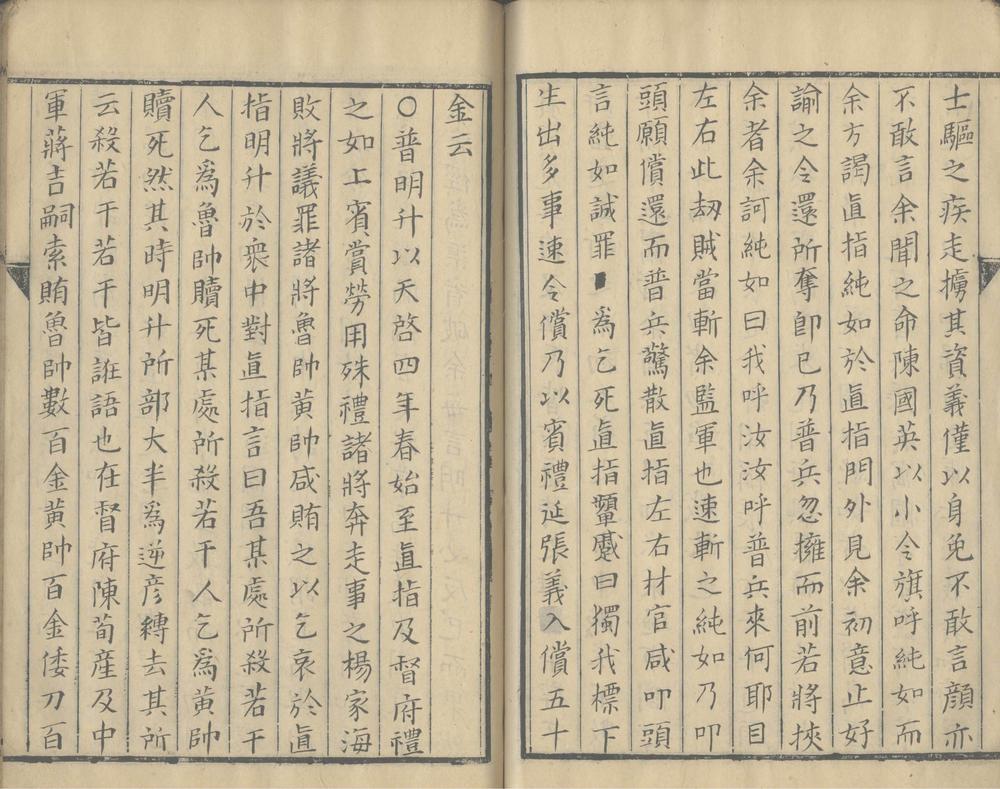 士驅之疾走擄其資義僅以身免不敢言顏亦
不敢言余聞之命陳國英以小令旗呼純如而
余方謁眞指純如於眞指門外見余初意止好
諭之令還所奪卽已乃普兵忽擁而前若將挾
余者余訶純如曰我呼汝汝呼普兵來何耶目
左右此刼賊當斬余監軍也速斬之純如乃叩
頭願償還而普兵驚散直指左右材官咸叩頭
言純如誠罪爲乞死直指顰蹙曰獨我標下
生出多事速令償乃以賓禮延張義入償五十
金云
○普明升以天啓四年春始至直指及督府禮
之如上賓賞勞用殊禮諸將奔走事之楊家海
敗將議罪諸將魯帥黃帥咸賄之以乞哀於眞
指明升於衆中對眞指言曰吾某處所殺若干
人乞爲魯帥贖死某處所殺若干人乞爲黃帥
贖死然其時明升所部大半爲逆彦縛去其所
云殺若干若干皆誑語也在督府陳荀産及中
軍蔣吉嗣索賄魯帥數百金黃帥百金倭刀百